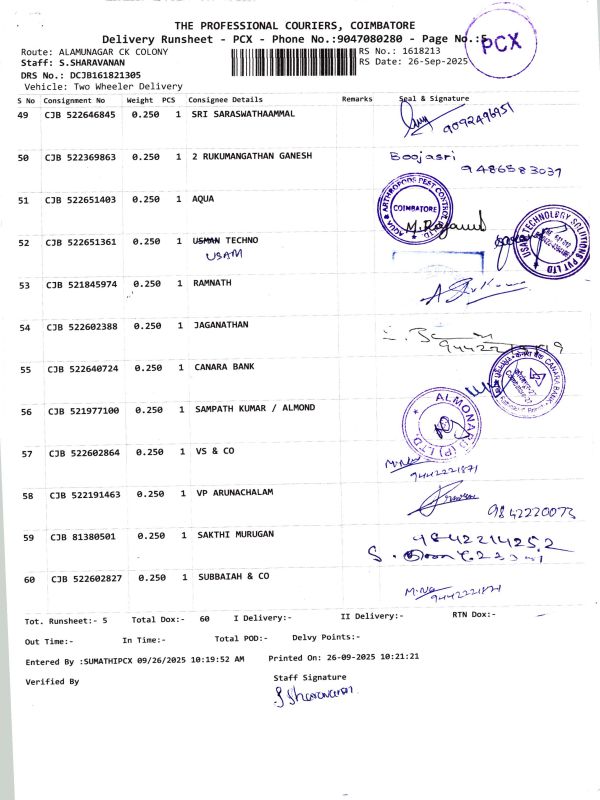 THE PROFESSIONAL COURIERS, COIMBATORE
Delivery Runsheet - PCX - Phone No.:9047080280 - Page No.:5
PCX
Route: ALAMUNAGAR CK COLONY
RS No.: 1618213
Staff: S.SHARAVANAN
RS Date: 26-Sep-2025
DRS No.: DCJB161821305
Vehicle: Two Wheeler Delivery
S No Consignment No Weight PCS Consignee Details Remarks Seal & Signature
49 CJB 522646845 0.250 1 SRI SARASWATHAAMMAL
9092496951
50 CJB 522369863 0.250 1 2 RUKUMANGATHAN GANESH Boojasri
9486583037
51 CJB 522651403 0.250 1 AQUA
AQUA & ARTHROPODS PEST CONTROL
COIMBATORE
52 CJB 522651361 0.250 1 USMAN TECHNO
USAM
USAM TECHNOLOGY SOLUTIONS PVT LTD
53 CJB 521845974 0.250 1 RAMNATH
54 CJB 522602388 0.250 1 JAGANATHAN
55 CJB 522640724 0.250 1 CANARA BANK
CANARA BANK
56 CJB 521977100 0.250 1 SAMPATH KUMAR / ALMOND
ALMONARD (P) LTD.
57 CJB 522602864 0.250 1 VS & CO
9442221871
58 CJB 522191463 0.250 1 VP ARUNACHALAM
9842220073
59 CJB 81380501 0.250 1 SAKTHI MURUGAN
60 CJB 522602827 0.250 1 SUBBAIAH & CO
9442221871
Tot. Runsheet:- 5 Total Dox:- 60 I Delivery:- II Delivery:- RTN Dox:-
Out Time:- In Time:- Total POD:- Delvy Points:-
Entered By :SUMATHIPCX 09/26/2025 10:19:52 AM Printed On: 26-09-2025 10:21:21
Verified By Staff Signature